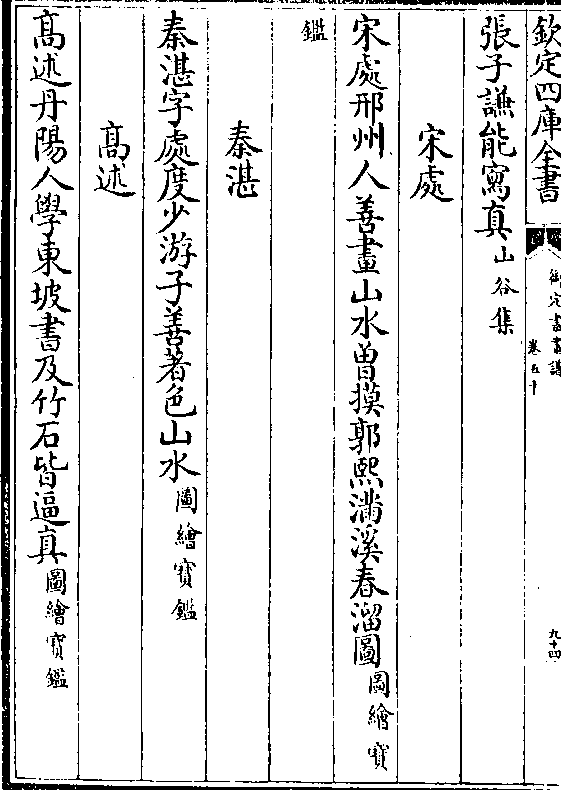 欽定四庫全書
御定書畫譜
卷五十
九十四
張子謙能寫真山谷集
宋處
宋處邢州人善畫山水曽摸郭熙滿溪春溜圖圖繪寳
鑑
秦湛
秦湛字處度少游子善著色山水圖繪寳鑑
髙述
髙述丹陽人學東坡書及竹石皆逼真圖繪寳鑑